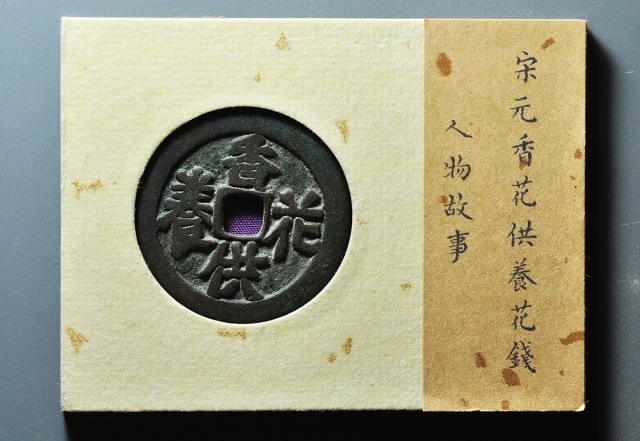 宋元香花供養花錢
人物故事
香花供養